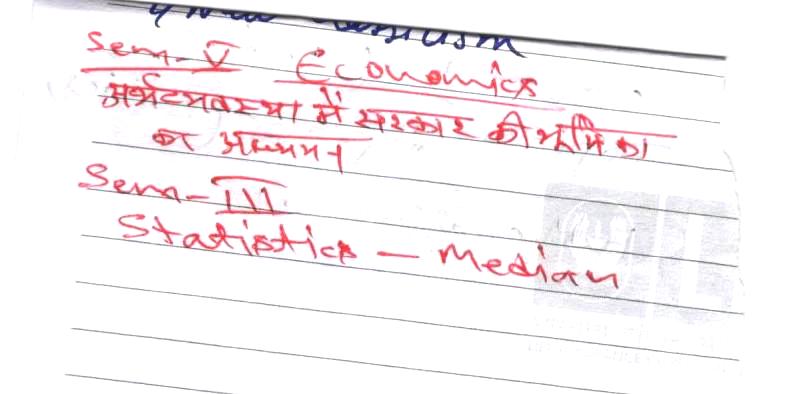 Sem-V Economics
अर्थव्यवस्था में सरकार की भूमिका
का अध्ययन।
Sem-III
Statistics - Median